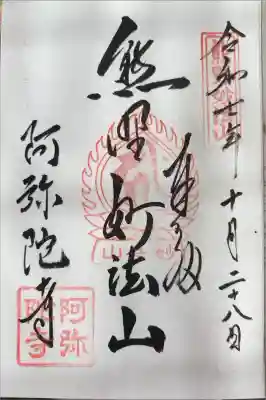 令和七年十月二十八日
奉拝
熊野妙法山
阿弥陀寺
阿弥
陀寺